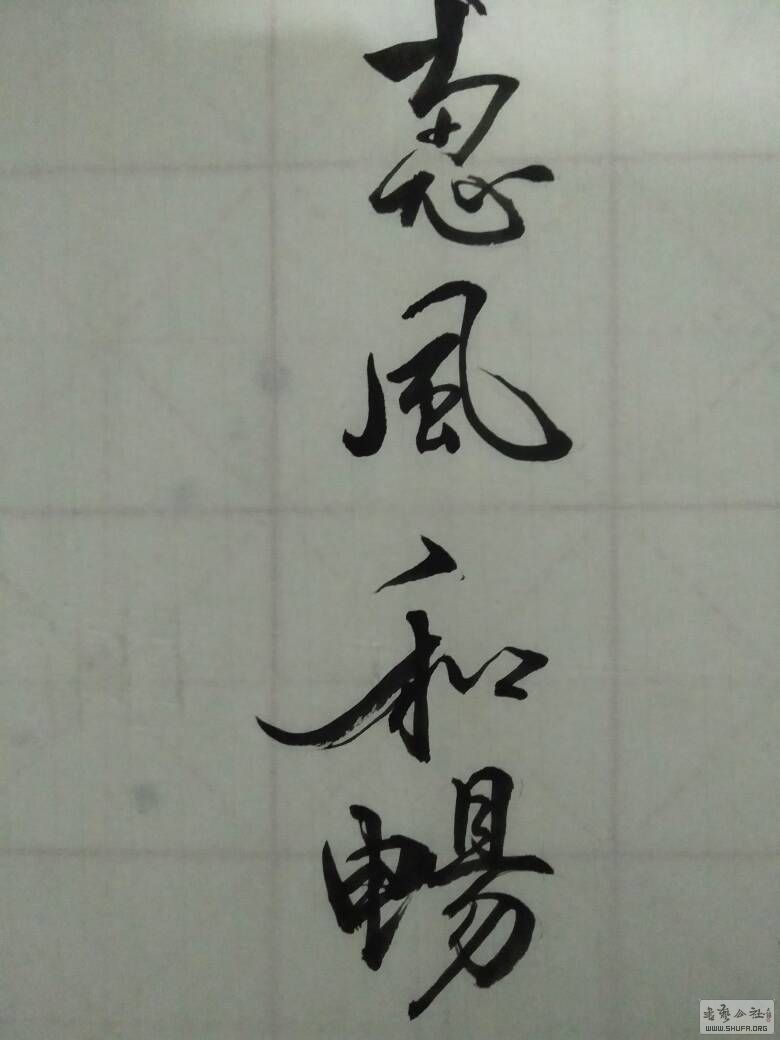 惠風和暢
书艺公社
WWW.SHUFA.ORG